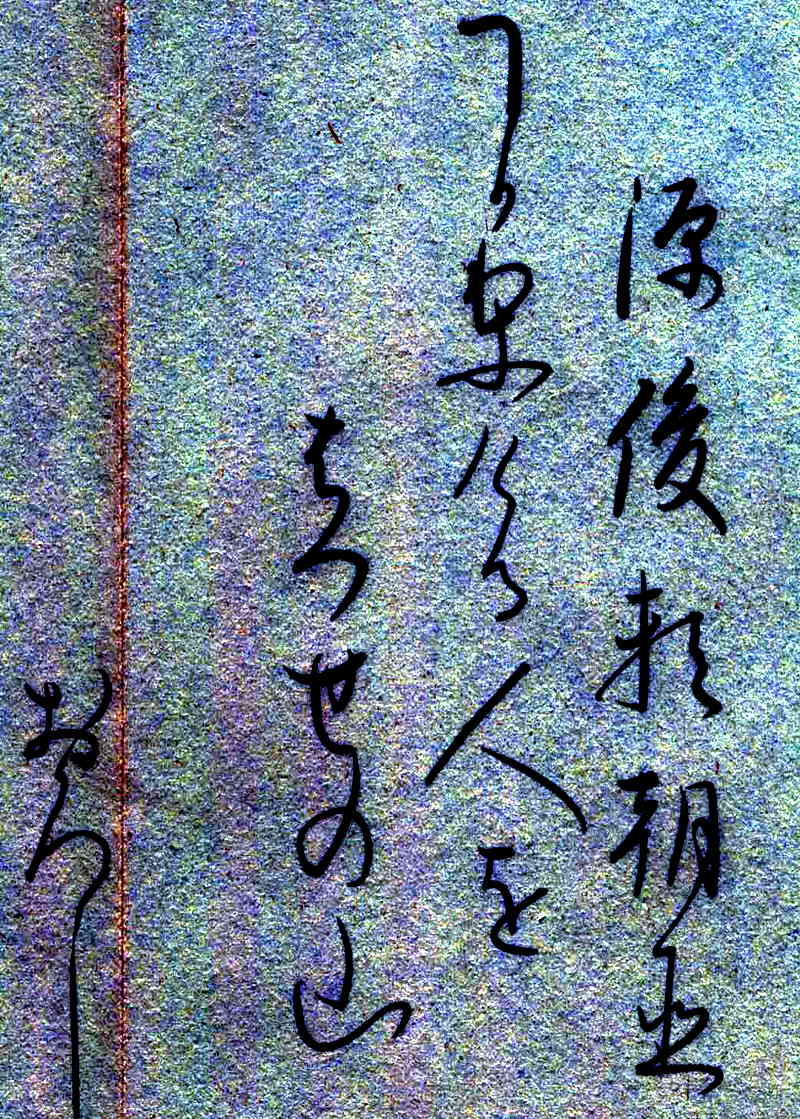 源俊頼朝臣
うかりける人を
はつせの山
おろし